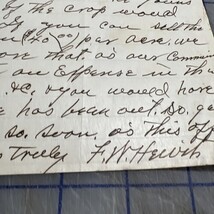 of the crop would
if you can sell the
(70.00) par acre, we
ore that, as our Commis
an Expense in th
&c, & you would have
e has been out. So, ge
so, soon, as this off
s truly F. W.